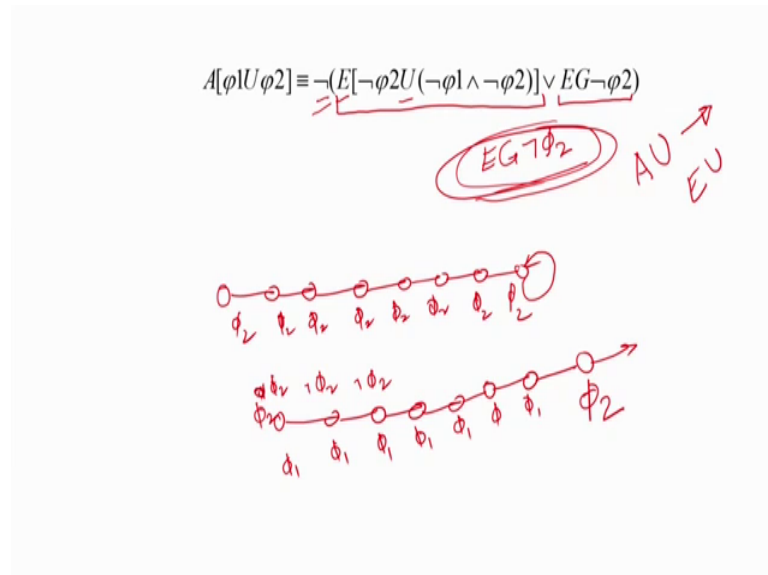 A[φ1Uφ2]≡¬(E[¬φ2U(¬φ1∧¬φ2)]∨EG¬φ2)
EG¬ϕ₂
AU
EU
ϕ₂ ϕ₂ ϕ₂ ϕ₂ ϕ₂ ϕ₂ ϕ₂ ϕ₂
ϕ₂ ¬ϕ₂ ¬ϕ₂
ϕ₂
ϕ₁ ϕ₁ ϕ₁ ϕ₁ ϕ₁ ϕ ϕ₁ ϕ₂